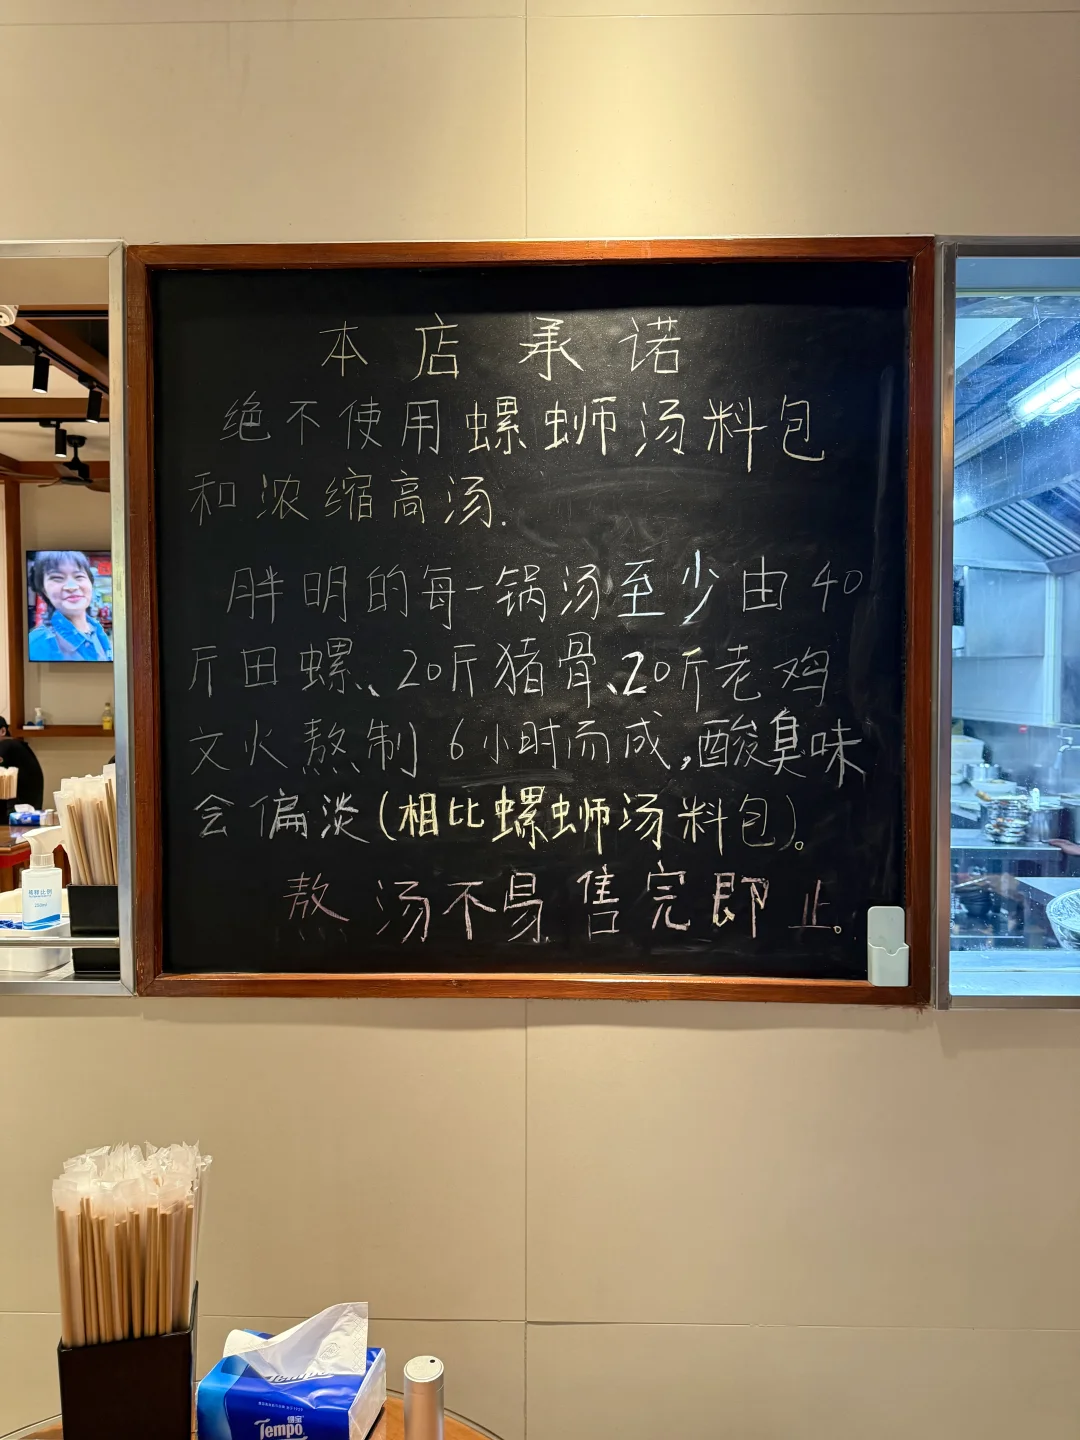 本店承诺
绝不使用螺蛳汤料包
和浓缩高汤.
胖明的每一锅汤至少由40
斤田螺、20斤猪骨、20斤老鸡
文火熬制6小时而成,酸臭味
会偏淡(相比螺蛳汤料包)。
熬汤不易 售完即止。
Tempo
得宝
Tempo